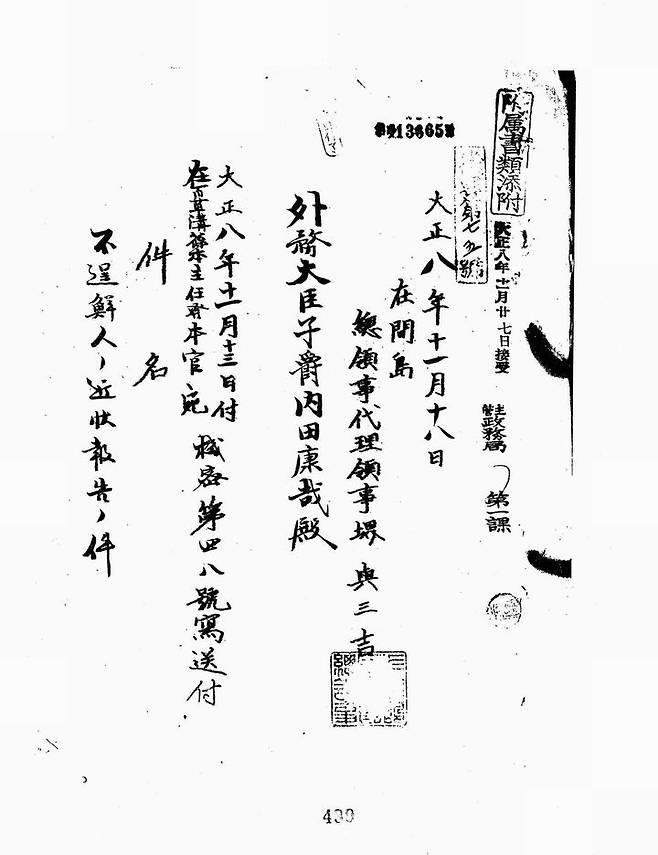 附属書類添附
大正八年十一月廿七日接受
主管政務局
第一課
13665
大正八年十一月十八日
在間島
總領事代理領事堺與三吉
外務大臣子爵内田康哉殿
大正八年十一月十三日付
在百草溝分館主任発本官宛
機密第四八號寫送付
件名
不逞鮮人ノ近状報告ノ件
430